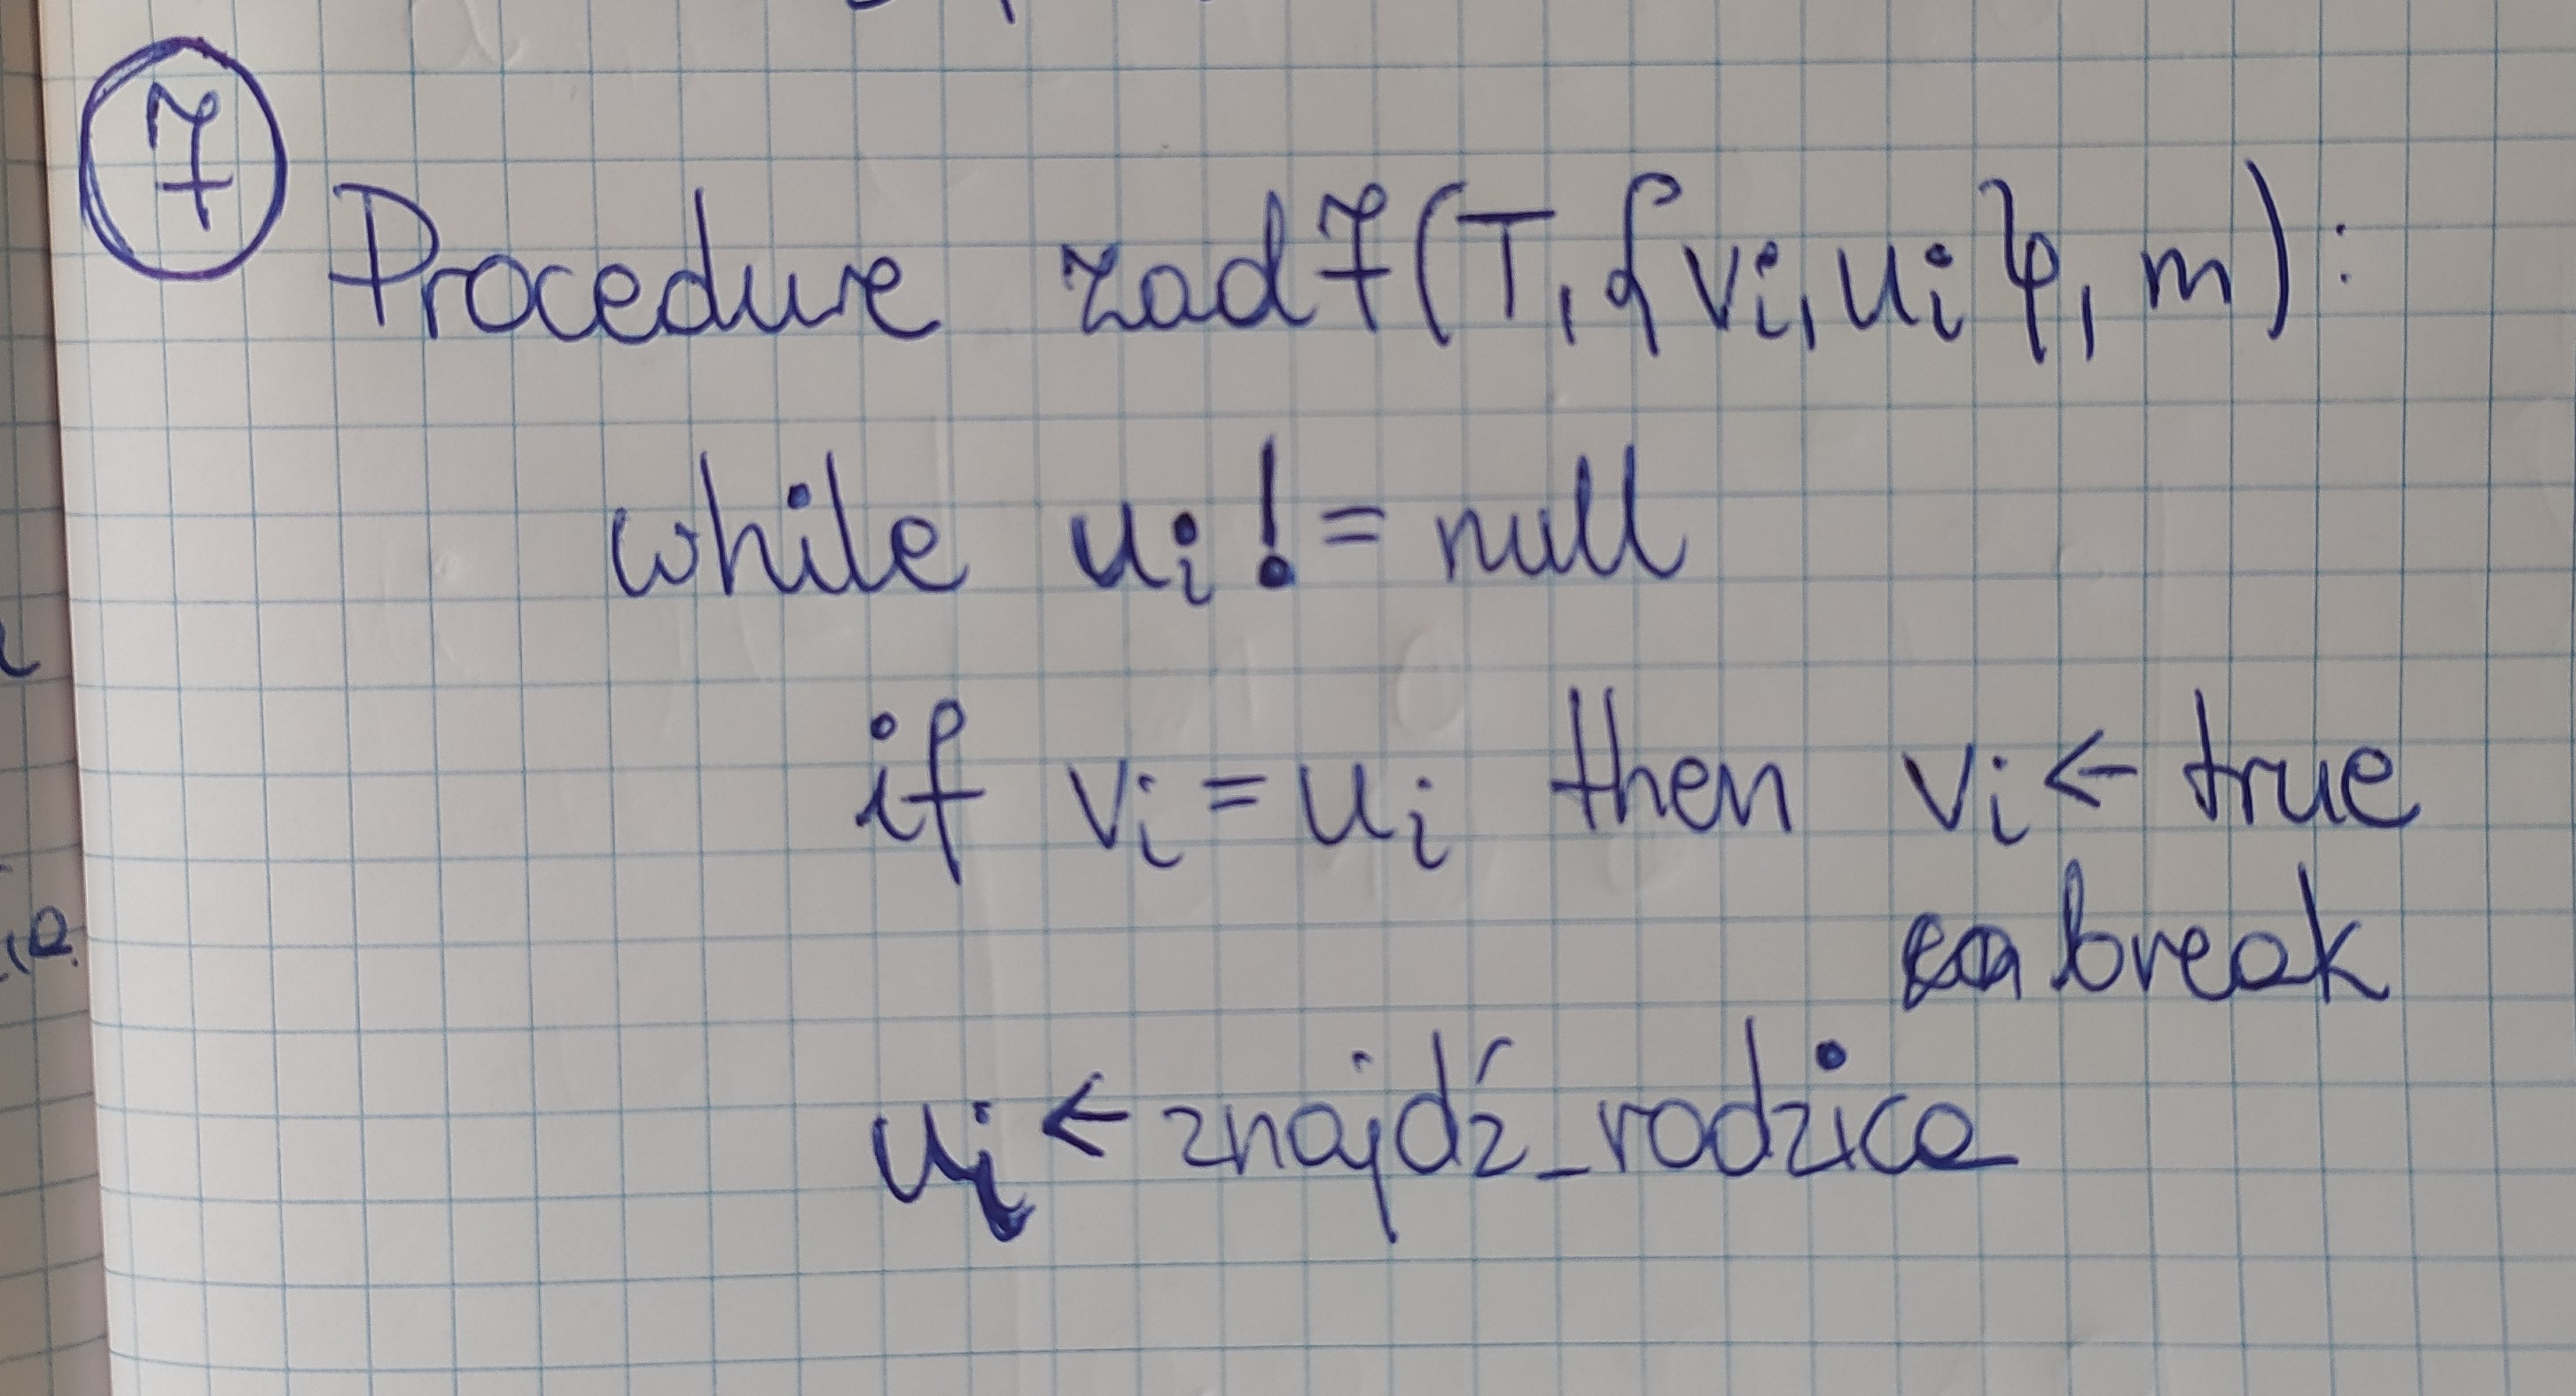 7
Procedure zad7(T, {vi, ui}, m):
while ui != null
if vi = ui then vi ← true
break
ui ← znajdź_rodzica